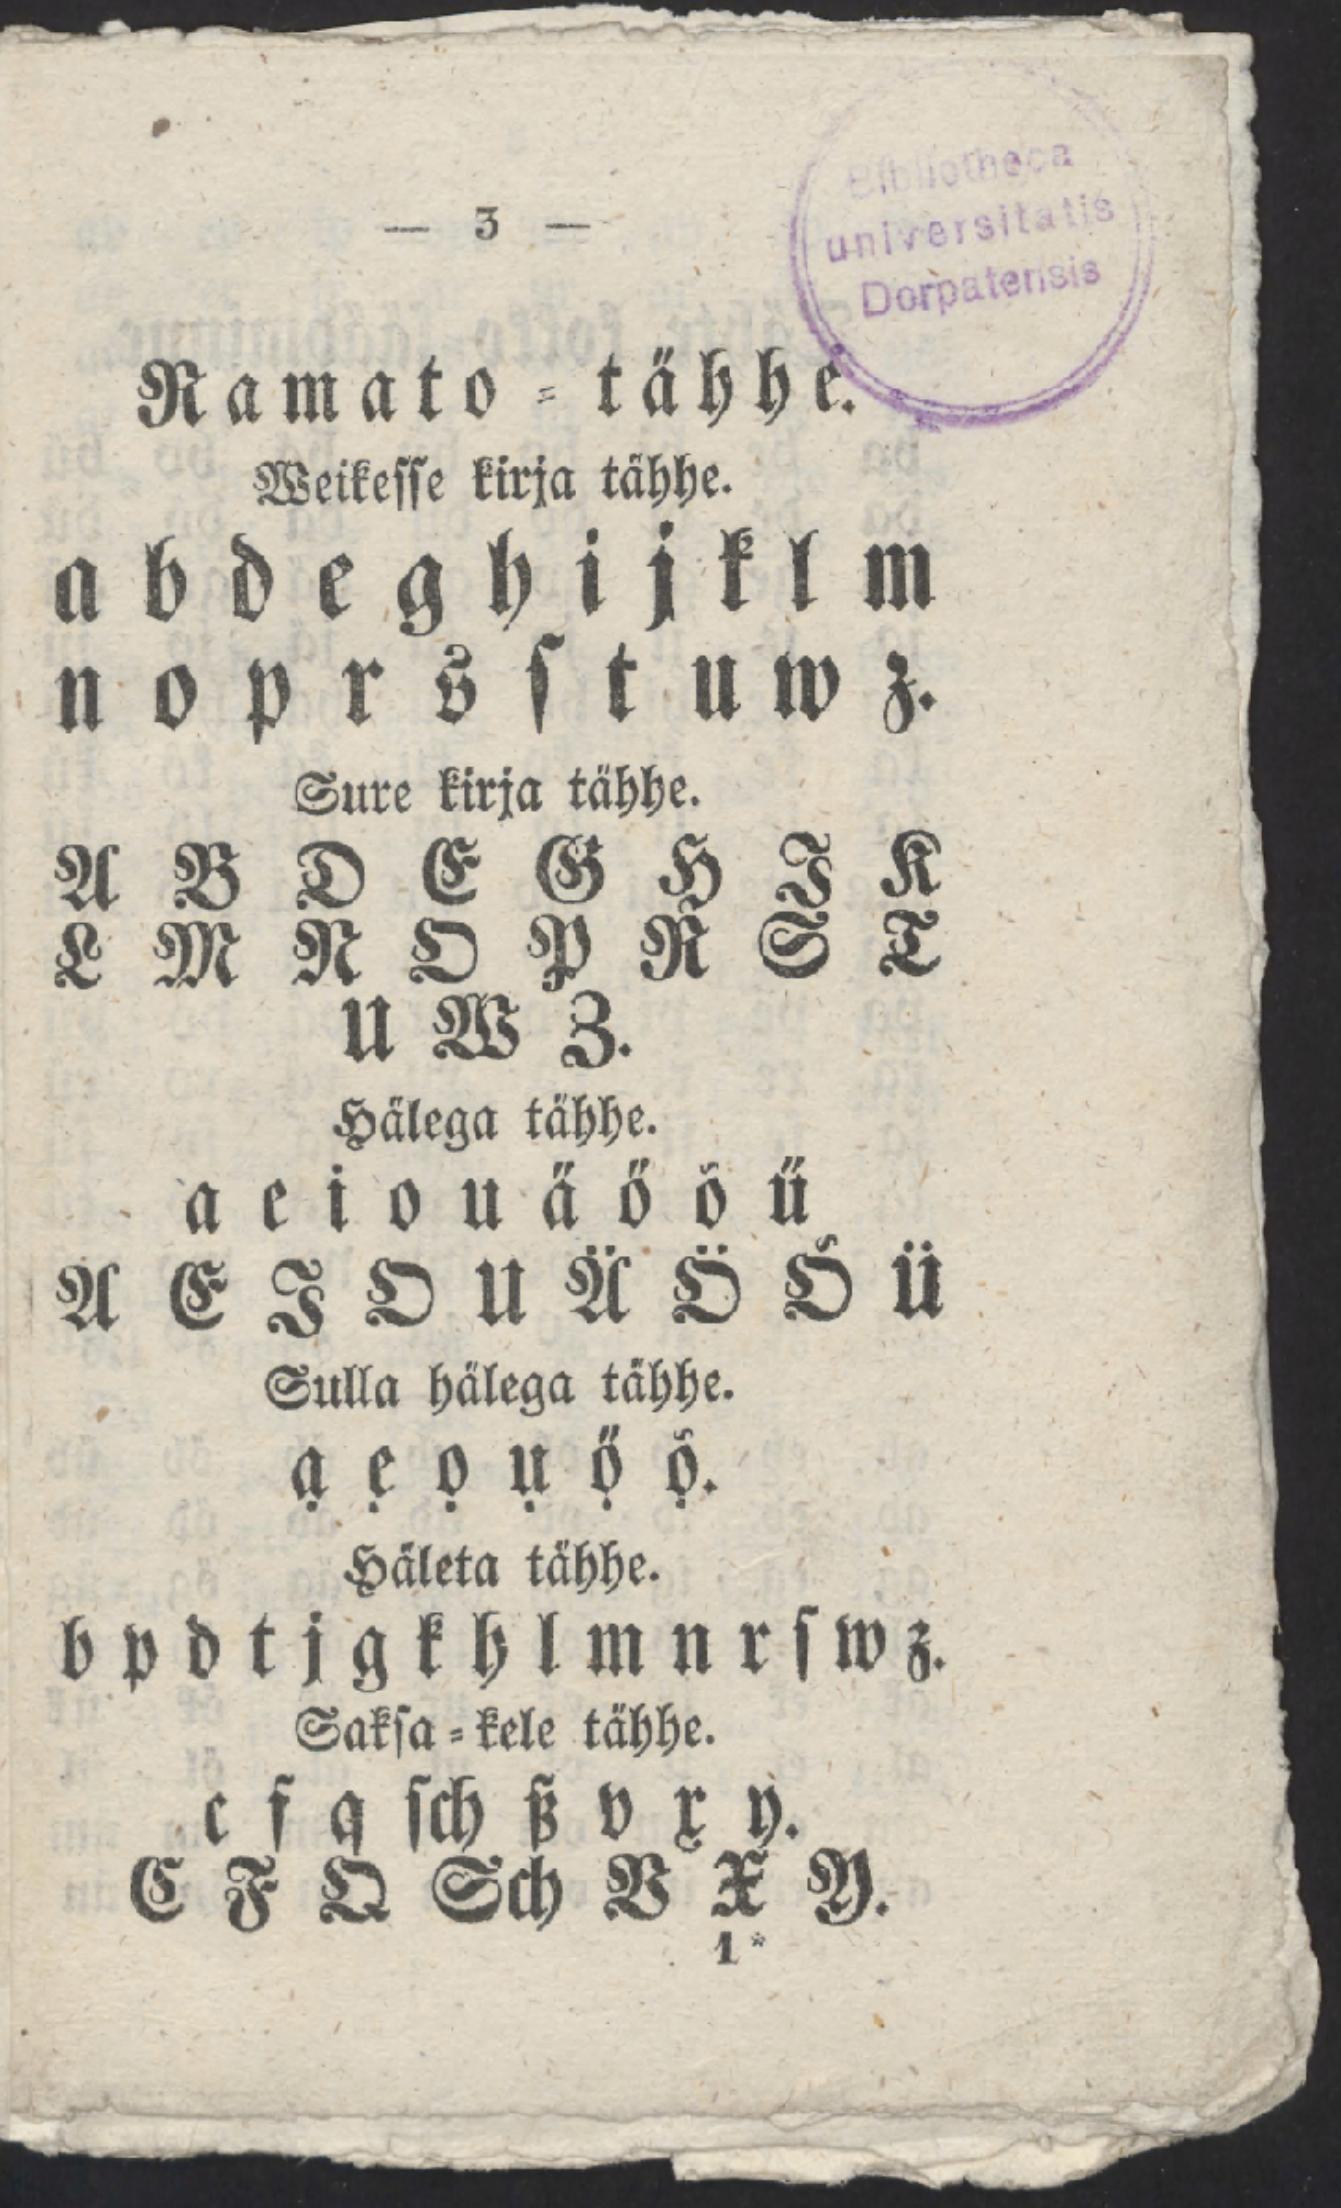 — 3 —
Bibliotheca
universitatis
Dorpatensis
Ramato = tähhe.
Weikesse kirja tähhe.
a b d e g h i j k l m
n o p r s ſ t u w z.
Sure kirja tähhe.
A B D E G H I K
L M N O P R S T
U W Z.
Hälega tähhe.
a e i o u ä ő ô ű
A E I O U Ä Ö Ô Ü
Sulla hälega tähhe.
ạ ẹ ọ ụ ọ̋ ộ.
Häleta tähhe.
b p d t j g k h l m n r ſ w z.
Sakſa = kele tähhe.
c f q ſch ß v x y.
C F Q Sch V X Y.
1*